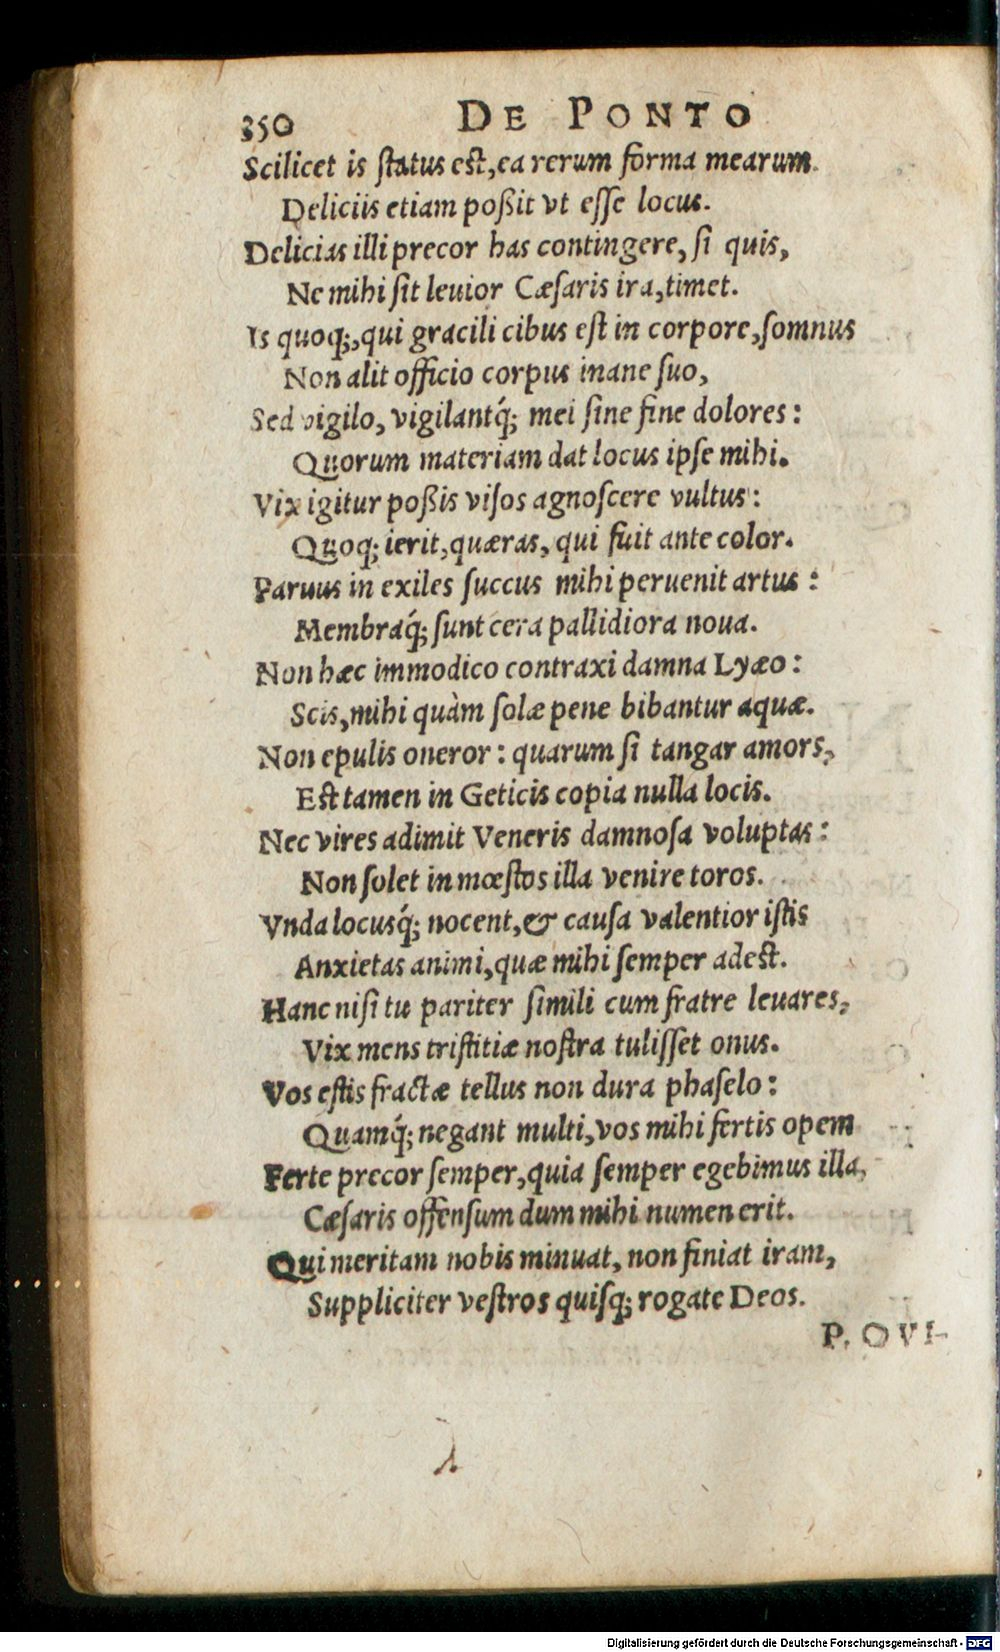 350 DE PONTO
Scilicet is ſtatus eſt, ea rerum forma mearum.
Deliciis etiam poßit vt eſſe locus.
Delicias illi precor has contingere, ſi quis,
Ne mihi ſit leuior Cæſaris ira, timet.
Is quoq;, qui gracili cibus eſt in corpore, ſomnus
Non alit officio corpus inane ſuo,
Sed vigilo, vigilantq́; mei ſine fine dolores:
Quorum materiam dat locus ipſe mihi.
Vix igitur poßis viſos agnoſcere vultus:
Quoq; ierit, quæras, qui fuit ante color.
Paruus in exiles ſuccus mihi peruenit artus:
Membraq́; ſunt cera pallidiora noua.
Non hæc immodico contraxi damna Lyæo:
Scis, mihi quàm ſolæ pene bibantur aquæ.
Non epulis oneror: quarum ſi tangar amors,
Eſt tamen in Geticis copia nulla locis.
Nec vires adimit Veneris damnoſa voluptas:
Non ſolet in mœſtos illa venire toros.
Vnda locusq́; nocent, & cauſa valentior iſtis
Anxietas animi, quæ mihi ſemper adeſt.
Hanc niſi tu pariter ſimili cum fratre leuares,
Vix mens triſtitiæ noſtra tuliſſet onus.
Vos eſtis fractæ tellus non dura phaſelo:
Quamq́; negant multi, vos mihi fertis opem
Ferte precor ſemper, quia ſemper egebimus illa,
Cæſaris offenſum dum mihi numen erit.
Qui meritam nobis minuat, non finiat iram,
Suppliciter veſtros quiſq; rogate Deos.
P. OVI-
Digitalisierung gefördert durch die Deutsche Forschungsgemeinschaft - DFG